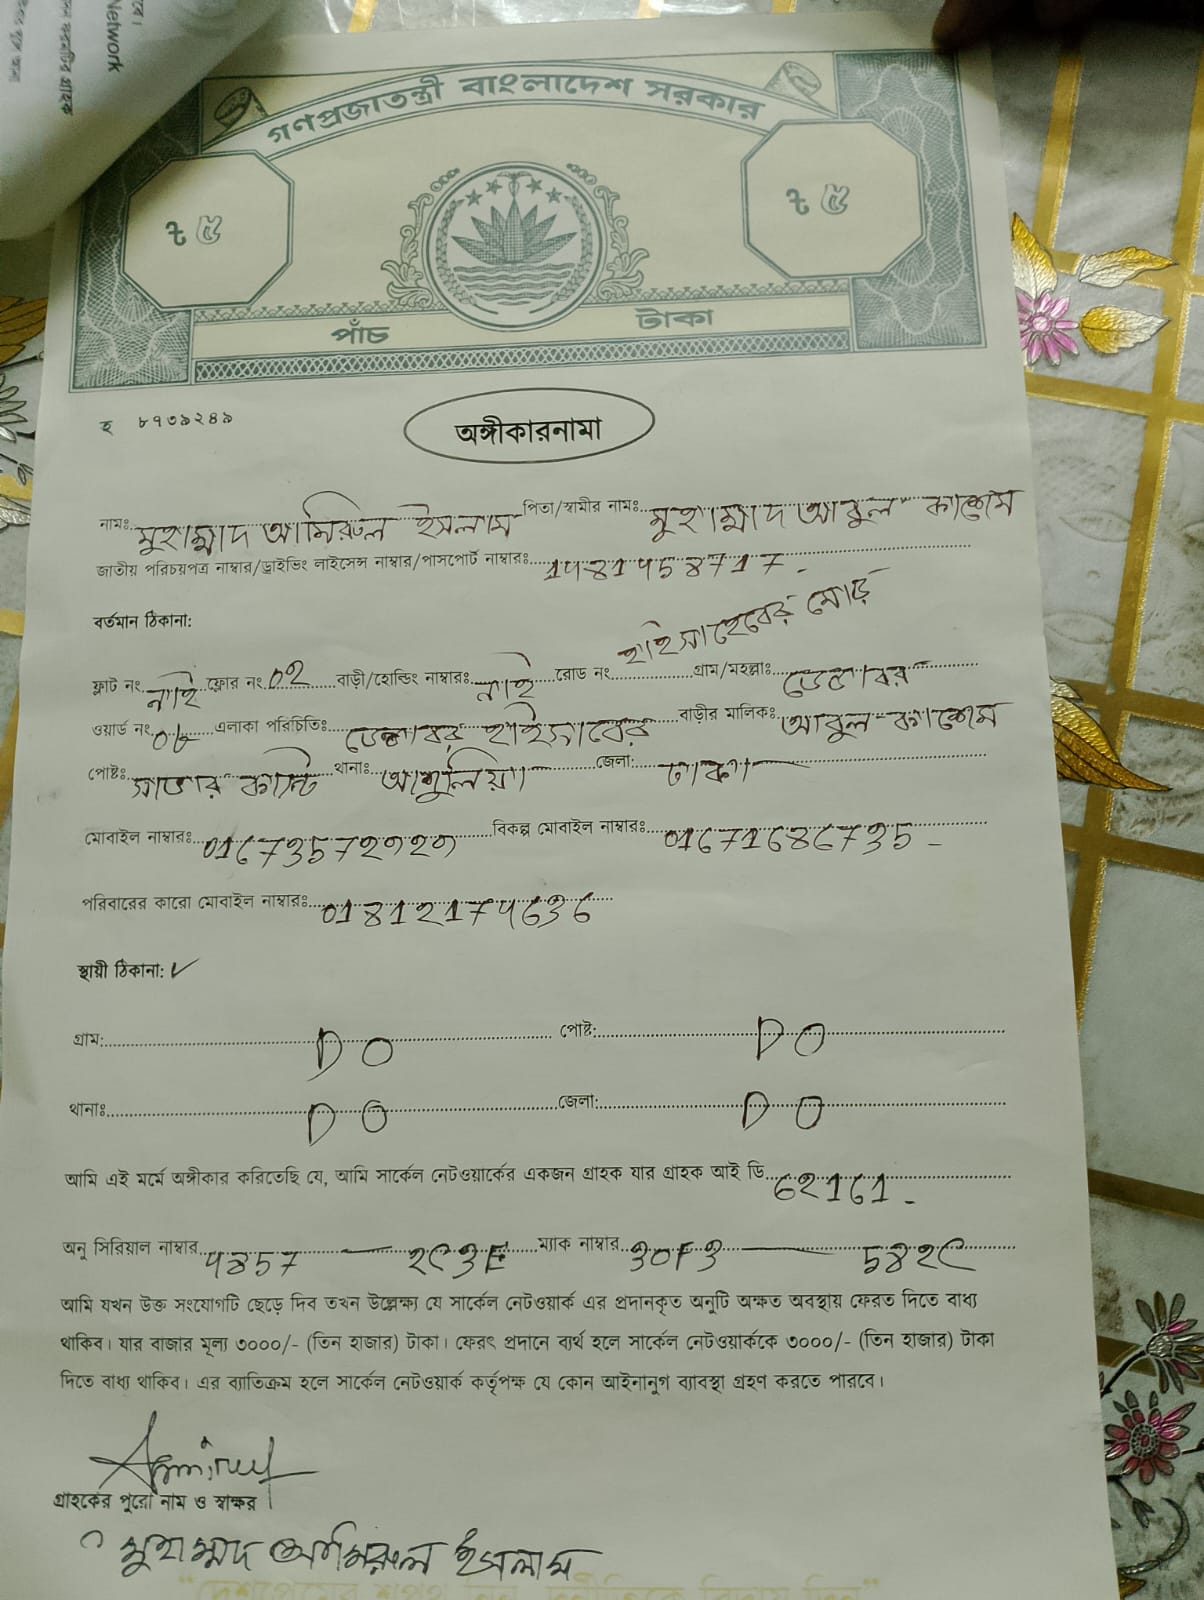 Network
গণপ্রজাতন্ত্রী বাংলাদেশ সরকার
৳ ৫ ৳ ৫
পাঁচ টাকা
হ ৮৭৩৯২৪৯
অঙ্গীকারনামা
নামঃ মুহাম্মাদ আমিরুল ইসলাম পিতা/স্বামীর নামঃ মুহাম্মাদ আবুল কাশেম
জাতীয় পরিচয়পত্র নাম্বার/ড্রাইভিং লাইসেন্স নাম্বার/পাসপোর্ট নাম্বারঃ
বর্তমান ঠিকানা:
হাইসাহেবের মোড়
ফ্লাট নং নাই ফ্লোর নং 02 বাড়ী/হোল্ডিং নাম্বারঃ নাই রোড নং গ্রাম/মহল্লাঃ
ওয়ার্ড নং এলাকা পরিচিতিঃ বাড়ীর মালিকঃ আবুল কাশেম
পোষ্টঃ সাভার কান্টি থানাঃ আশুলিয়া জেলা: ঢাকা
মোবাইল নাম্বারঃ বিকল্প মোবাইল নাম্বারঃ 01671686735
পরিবারের কারো মোবাইল নাম্বারঃ
স্থায়ী ঠিকানা: ✓
গ্রাম: DO পোষ্ট: DO
থানাঃ DO জেলা: DO
আমি এই মর্মে অঙ্গীকার করিতেছি যে, আমি সার্কেল নেটওয়ার্কের একজন গ্রাহক যার গ্রাহক আই ডি 62161
অনু সিরিয়াল নাম্বার ম্যাক নাম্বার
আমি যখন উক্ত সংযোগটি ছেড়ে দিব তখন উল্লেক্ষ্য যে সার্কেল নেটওয়ার্ক এর প্রদানকৃত অনুটি অক্ষত অবস্থায় ফেরত দিতে বাধ্য
থাকিব। যার বাজার মূল্য ৩০০০/- (তিন হাজার) টাকা। ফেরৎ প্রদানে ব্যর্থ হলে সার্কেল নেটওয়ার্ককে ৩০০০/- (তিন হাজার) টাকা
দিতে বাধ্য থাকিব। এর ব্যাতিক্রম হলে সার্কেল নেটওয়ার্ক কর্তৃপক্ষ যে কোন আইনানুগ ব্যাবস্থা গ্রহণ করতে পারবে।
Amirul
গ্রাহকের পুরো নাম ও স্বাক্ষর।
মুহাম্মাদ আমিরুল ইসলাম